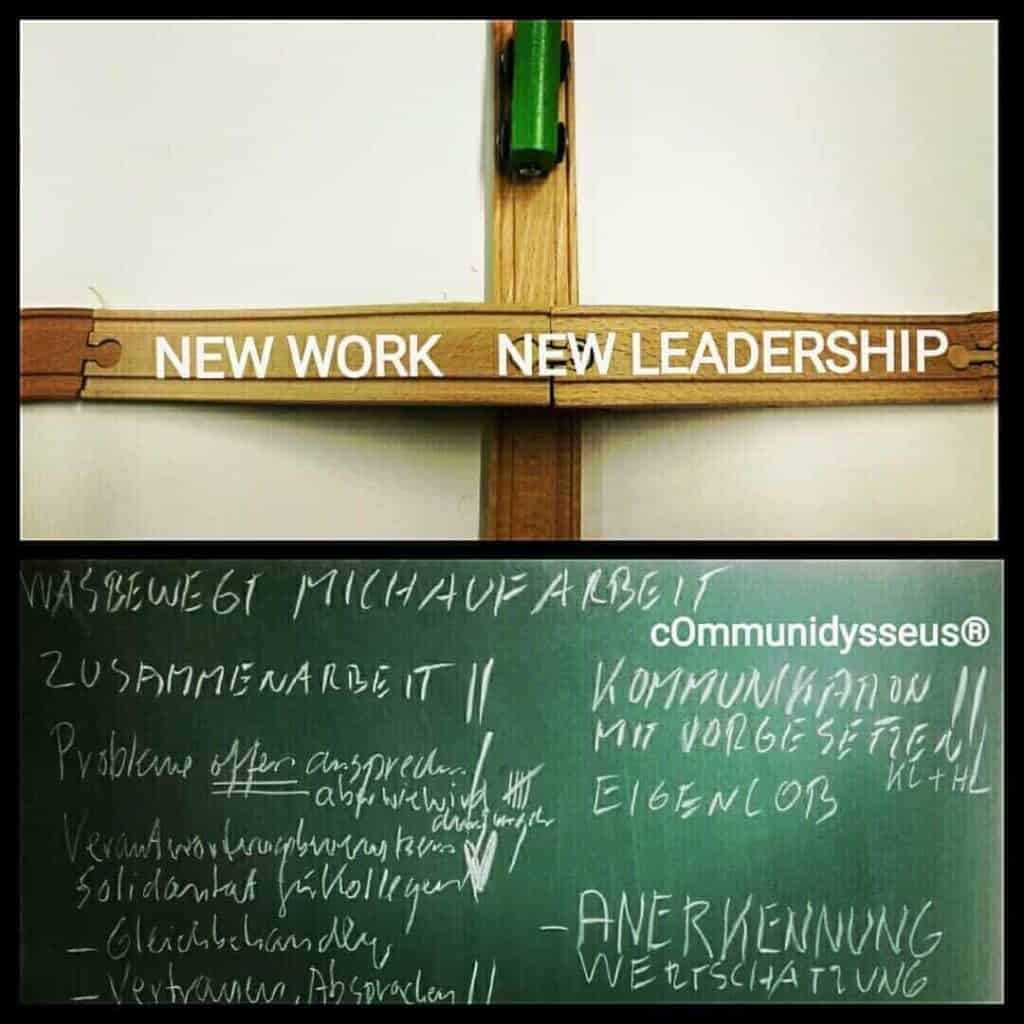 NEW WORK NEW LEADERSHIP
WAS BEWEGT MICH AUF ARBEIT
cOmmunidysseus®
ZUSAMMENARBEIT
Probleme offen ansprechen
aber wie wird
Verantwortungsbewusstsein
Solidarität für Kollegen
- Gleichbehandlung
- Vertrauen, Absprachen
KOMMUNIKATION
MIT VORGESETZEN
KL + HL
EIGENLOB
- ANERKENNUNG
WERTSCHÄTZUNG